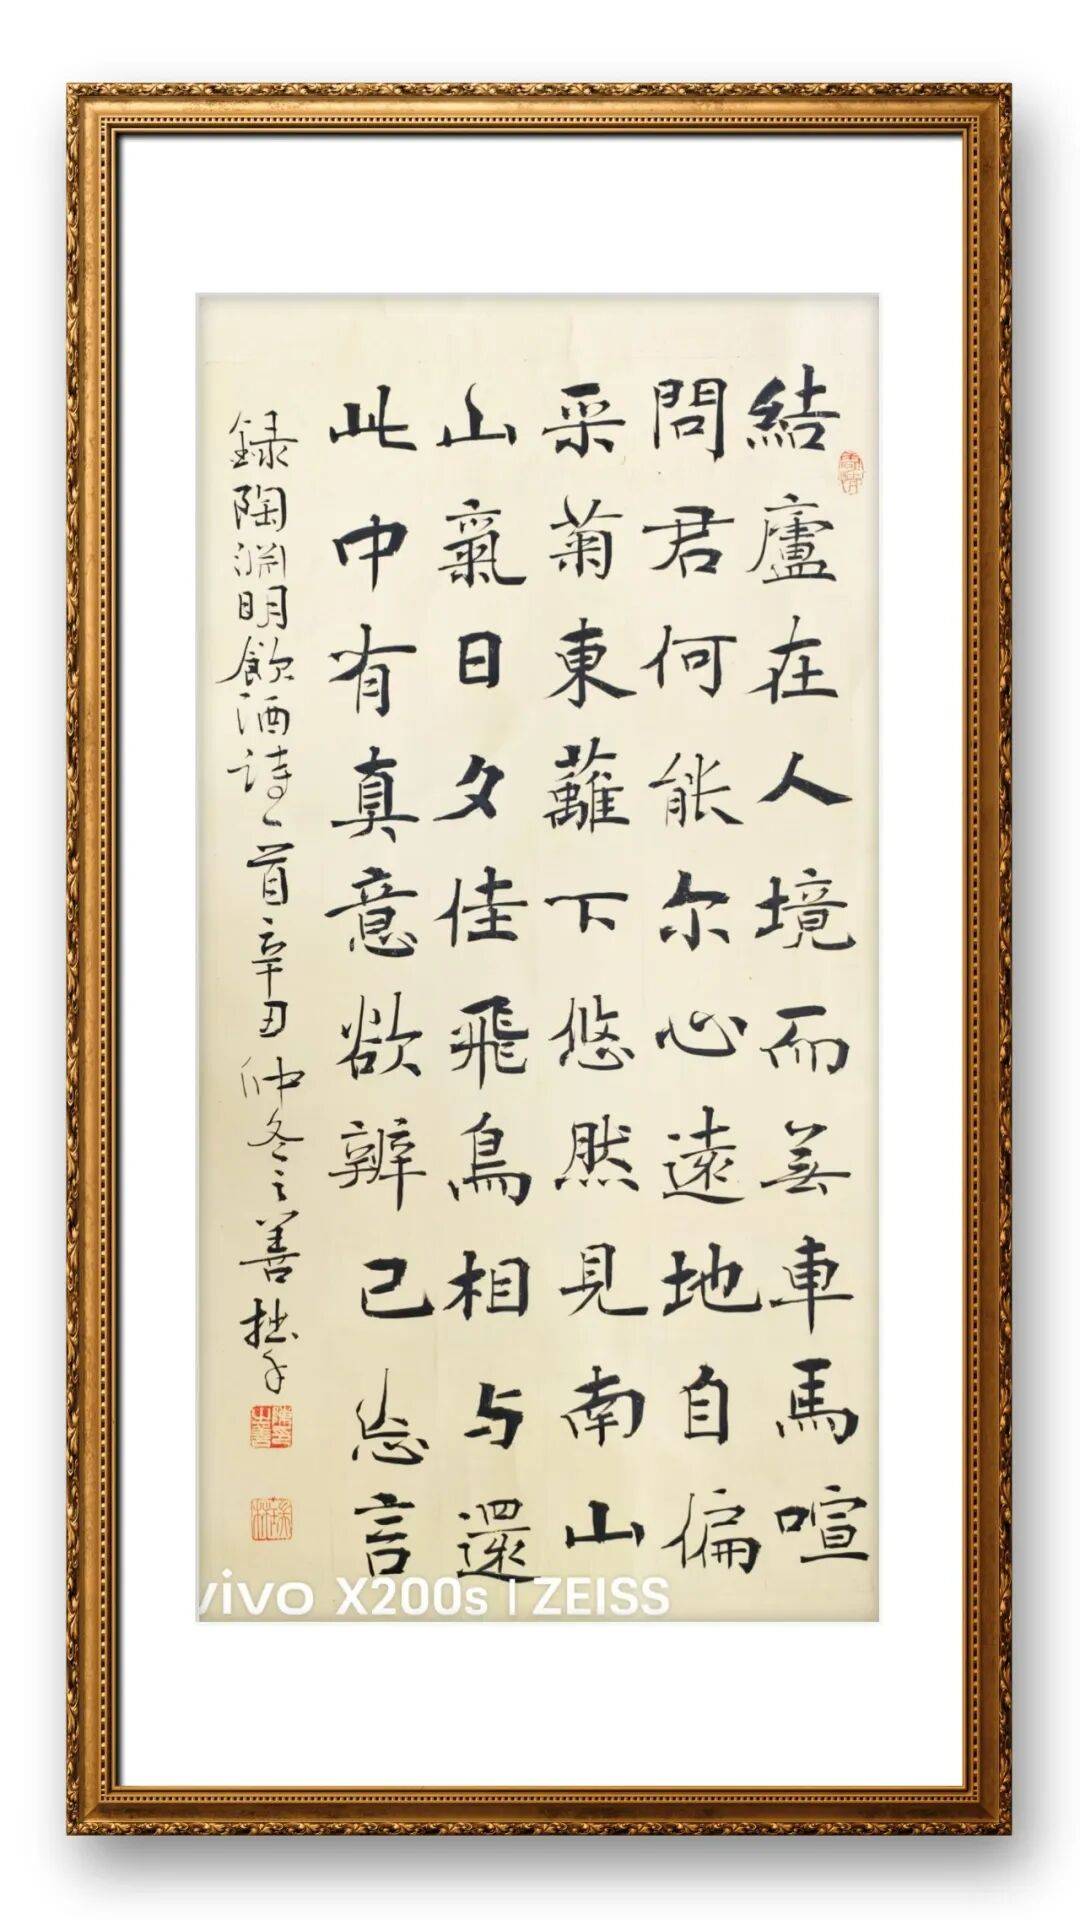 結廬在人境而无車馬喧
問君何能尔心遠地自偏
采菊東蘺下悠然見南山
山氣日夕佳飛鳥相与還
此中有真意欲辨已忘言
録陶渊明飲酒詩一首辛丑仲冬之善拙手
vivo X200s | ZEISS